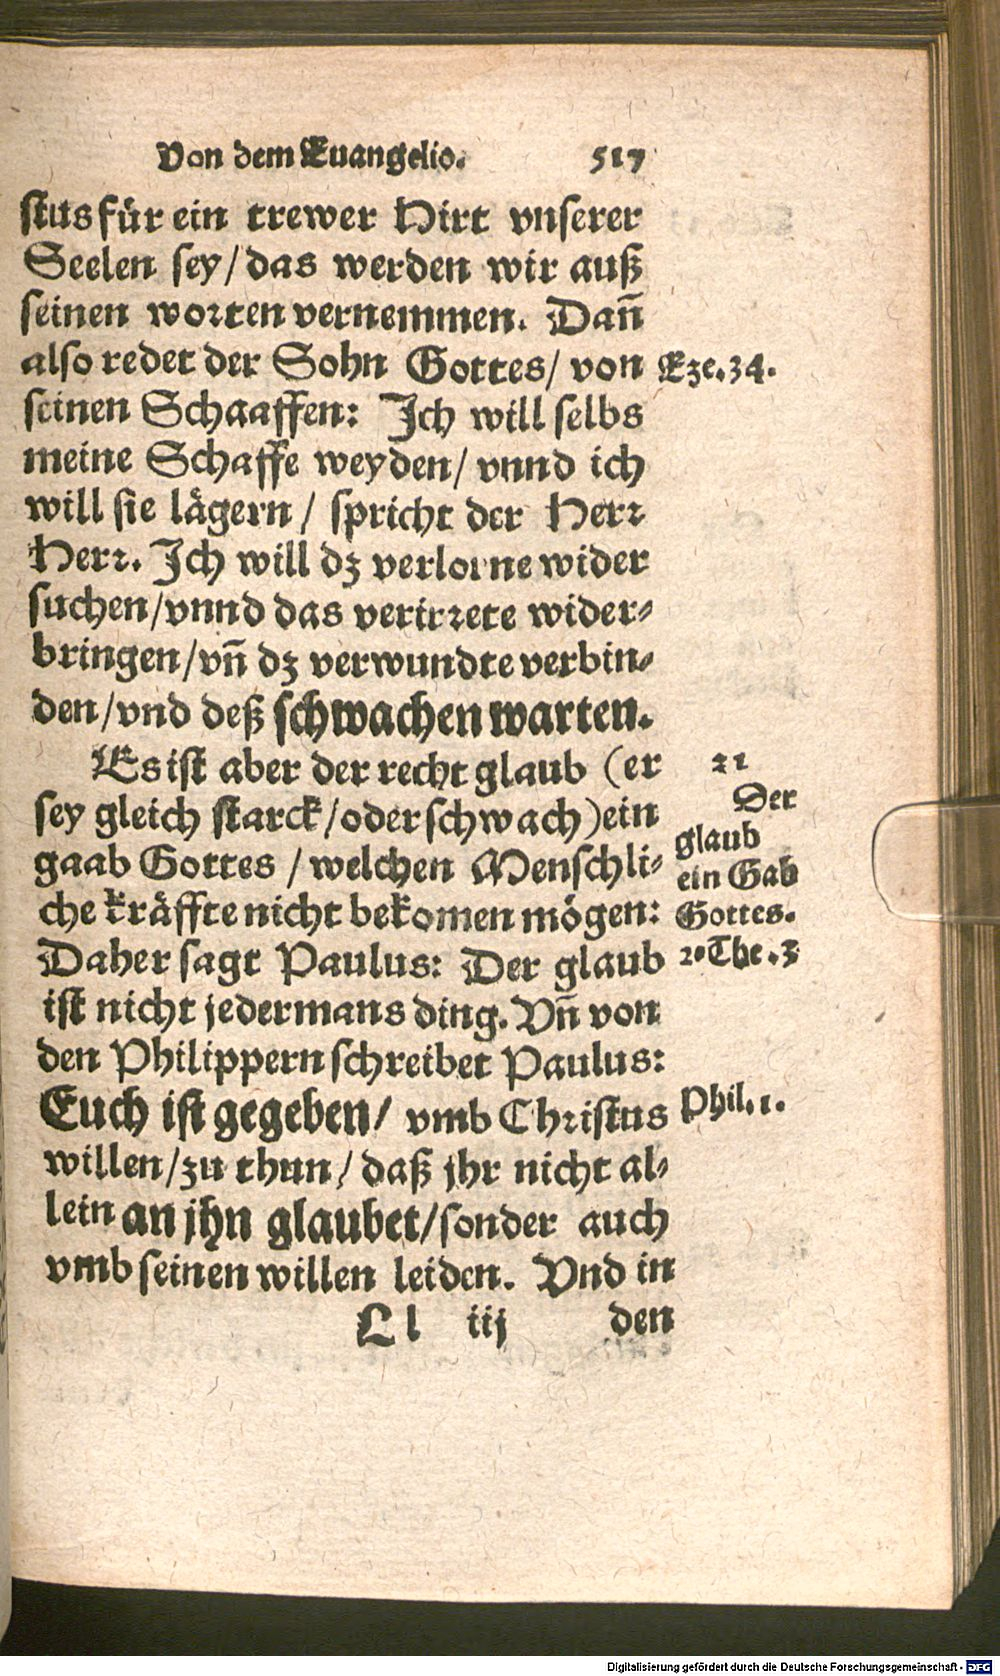 Von dem Euangelio. 517
stus für ein trewer Hirt vnserer
Seelen sey/ das werden wir auß
seinen worten vernemmen. Dañ
also redet der Sohn Gottes/ von
Eze. 34.
seinen Schaaffen: Ich will selbs
meine Schaffe weyden/ vnnd ich
will sie lägern/ spricht der Herr
Herr. Ich will dz verlorne wider
suchen/ vnnd das verirrete wider-
bringen/ vñ dz verwundte verbin-
den/ vnd deß schwachen warten.
Es ist aber der recht glaub (er
sey gleich starck/ oder schwach) ein
gaab Gottes / welchen Menschli-
che kräffte nicht bekomen mögen:
Daher sagt Paulus: Der glaub
ist nicht jedermans ding. Vñ von
den Philippern schreibet Paulus:
Euch ist gegeben/ vmb Christus
willen/ zu thun/ daß jhr nicht al-
lein an jhn glaubet/ sonder auch
vmb seinen willen leiden. Vnd in
21
Der
glaub
ein Gab
Gottes.
2. The. 3
Phil. 1.
Ll iij den
Digitalisierung gefördert durch die Deutsche Forschungsgemeinschaft - DFG